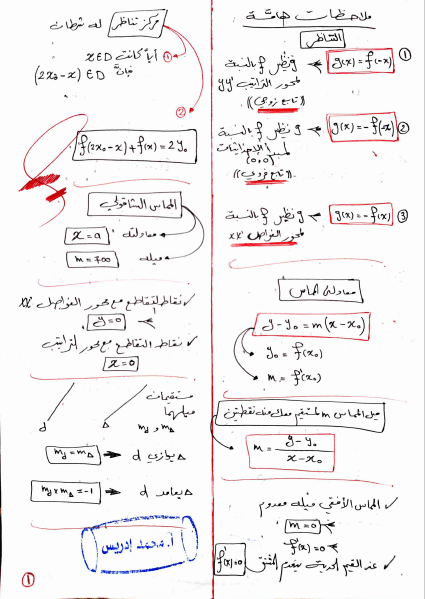 ملاحظات هامّة
التناظر
① g(x) = f(-x) ⇐ g نظير f بالنسبة
لمحور التراتيب yy'
((تابع زوجي))
② g(x) = -f(-x) ⇐ g نظير f بالنسبة
لمبدأ الإحداثيات
(0,0)
((تابع فردي))
③ g(x) = -f(x) ⇐ g نظير f بالنسبة
لمحور الفواصل xx'
معادلة المماس
y - y₀ = m(x - x₀)
y₀ = f(x₀)
m = f'(x₀)
ميل المماس m لمستقيم معلوم منه نقطتين
m = (y - y₀)/(x - x₀)
✓ المماس الأفقي ميله معدوم
m = 0
f'(x) = 0
✓ عند القيم الحدية ينعدم المشتق f'(x) = 0
مركز تناظر له شرطان
① أياً كانت x ∈ D
فإنّ (2x₀ - x) ∈ D
②
f(2x₀ - x) + f(x) = 2y₀
المماس الشاقولي
معادلته x = a
ميله m = ∓∞
✓ نقاط التقاطع مع محور الفواصل xx'
y = 0
✓ نقاط التقاطع مع محور التراتيب
x = 0
مستقيمات
ميلهما
d Δ m_Δ و m_d
Δ يوازي d m_d = m_Δ
Δ يعامد d m_d × m_Δ = -1
أ. محمد إدريس
①